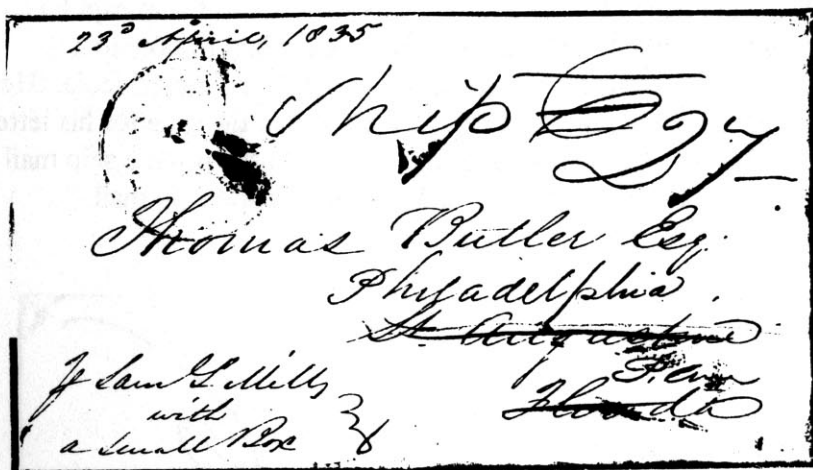 23ᵈ April, 1835
Ship 27
Thomas Butler Esq.
Philadelphia.
St. Augustine
Penn
Florida
Saml. Mills
with
a small Box